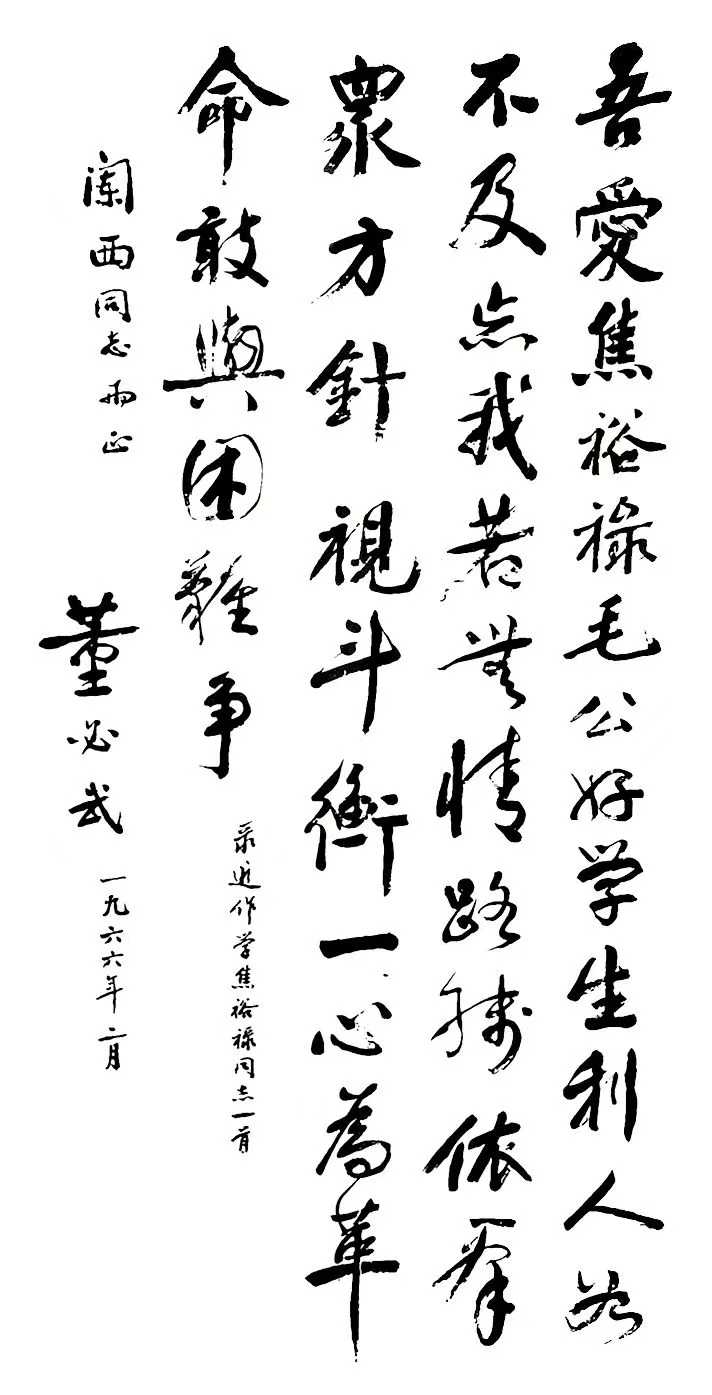 吾愛焦裕祿毛公好学生利人恐
不及忘我若無情路綫依羣
眾方針視斗衡一心為革
命敢與困難争
录近作学焦裕禄同志一首
闌西同志两正
董必武 一九六六年二月